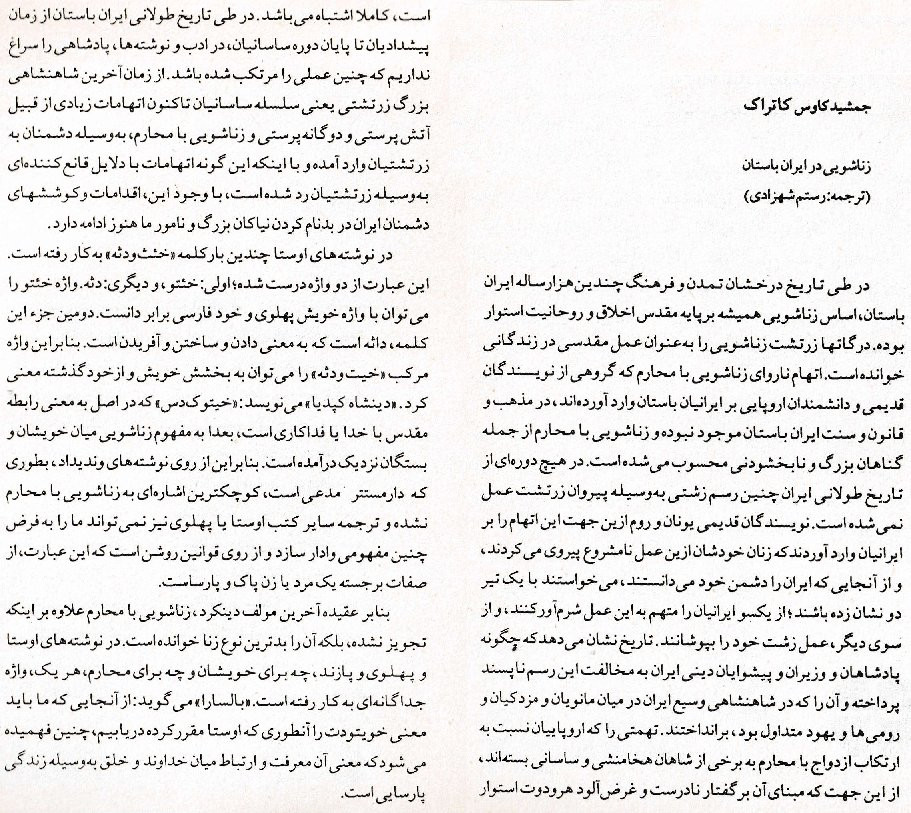 جمشید کاوس کاتراک
زناشویی در ایران باستان
(ترجمه: رستم شهزادی)
در طی تاریخ درخشان تمدن و فرهنگ چندین هزار ساله ایران
باستان، اساس زناشویی همیشه بر پایه مقدس اخلاق و روحانیت استوار
بوده. در گاتها زرتشت زناشویی را به‌عنوان عمل مقدسی در زندگانی
خوانده است. اتهام ناروای زناشویی با محارم که گروهی از نویسندگان
قدیمی و دانشمندان اروپایی بر ایرانیان باستان وارد آورده‌اند، در مذهب و
قانون و سنت ایران باستان موجود نبوده و زناشویی با محارم از جمله
گناهان بزرگ و نابخشودنی محسوب می‌شده است. در هیچ دوره‌ای از
تاریخ طولانی ایران چنین رسم زشتی به‌وسیله پیروان زرتشت عمل
نمی‌شده است. نویسندگان قدیمی یونان و روم ازین جهت این اتهام را بر
ایرانیان وارد آوردند که زنان خودشان ازین عمل نامشروع پیروی می‌کردند،
و از آنجایی که ایران را دشمن خود می‌دانستند، می‌خواستند با یک تیر
دو نشان زده باشند؛ از یکسو ایرانیان را متهم به این عمل شرم‌آور کنند، و از
سوی دیگر، عمل زشت خود را بپوشانند. تاریخ نشان می‌دهد که چگونه
پادشاهان و وزیران و پیشوایان دینی ایران به مخالفت این رسم ناپسند
پرداخته و آن را که در شاهنشاهی وسیع ایران در میان مانویان و مزدکیان و
رومی‌ها و یهود متداول بود، برانداختند. تهمتی را که اروپاییان نسبت به
ارتکاب ازدواج با محارم به برخی از شاهان هخامنشی و ساسانی بسته‌اند،
از این جهت که مبنای آن بر گفتار نادرست و غرض‌آلود هرودوت استوار
است، کاملا اشتباه می‌باشد. در طی تاریخ طولانی ایران باستان از زمان
پیشدادیان تا پایان دوره ساسانیان، در ادب و نوشته‌ها، پادشاهی را سراغ
نداریم که چنین عملی را مرتکب شده باشد. از زمان آخرین شاهنشاهی
بزرگ زرتشتی یعنی سلسله ساسانیان تاکنون اتهامات زیادی از قبیل
آتش پرستی و دوگانه‌پرستی و زناشویی با محارم، به‌وسیله دشمنان به
زرتشتیان وارد آمده و با اینکه این گونه اتهامات با دلایل قانع‌کننده‌ای
به‌وسیله زرتشتیان رد شده است، با وجود این، اقدامات و کوششهای
دشمنان ایران در بدنام کردن نیاکان بزرگ و نامور ما هنوز ادامه دارد.
در نوشته‌های اوستا چندین بار کلمه «خئث‌ودثه» به‌کار رفته است.
این عبارت از دو واژه درست شده؛ اولی: خئتو، و دیگری: دثه. واژه خئتو را
می‌توان با واژه خویش پهلوی و خود فارسی برابر دانست. دومین جزء این
کلمه، دائه است که به معنی دادن و ساختن و آفریدن است. بنابراین واژه
مرکب «خیت‌ودثه» را می‌توان به بخشش خویش و از خود گذشته معنی
کرد. «دینشاه کپدیا» می‌نویسد: «خیتوک‌دس» که در اصل به معنی رابطه
مقدس با خدا یا فداکاری است، بعدا به مفهوم زناشویی میان خویشان و
بستگان نزدیک درآمده است. بنابراین از روی نوشته‌های وندیداد، بطوری
که دارمستتر مدعی است، کوچکترین اشاره‌ای به زناشویی با محارم
نشده و ترجمه سایر کتب اوستا یا پهلوی نیز نمی‌تواند ما را به فرض
چنین مفهومی وادار سازد و از روی قوانین روشن است که این عبارت، از
صفات برجسته یک مرد یا زن پاک و پارساست.
بنابر عقیده آخرین مولف دینکرد، زناشویی با محارم علاوه بر اینکه
تجویز نشده، بلکه آن را بدترین نوع زنا خوانده است. در نوشته‌های اوستا
و پهلوی و پازند، چه برای خویشان و چه برای محارم، هر یک، واژه
جداگانه‌ای به کار رفته است. «بالسارا» می‌گوید: از آنجایی که ما باید
معنی خویتودت را آنطوری که اوستا مقرر کرده دریابیم، چنین فهمیده
می‌شود که معنی آن معرفت و ارتباط میان خداوند و خلق به‌وسیله زندگی
پارسایی است.